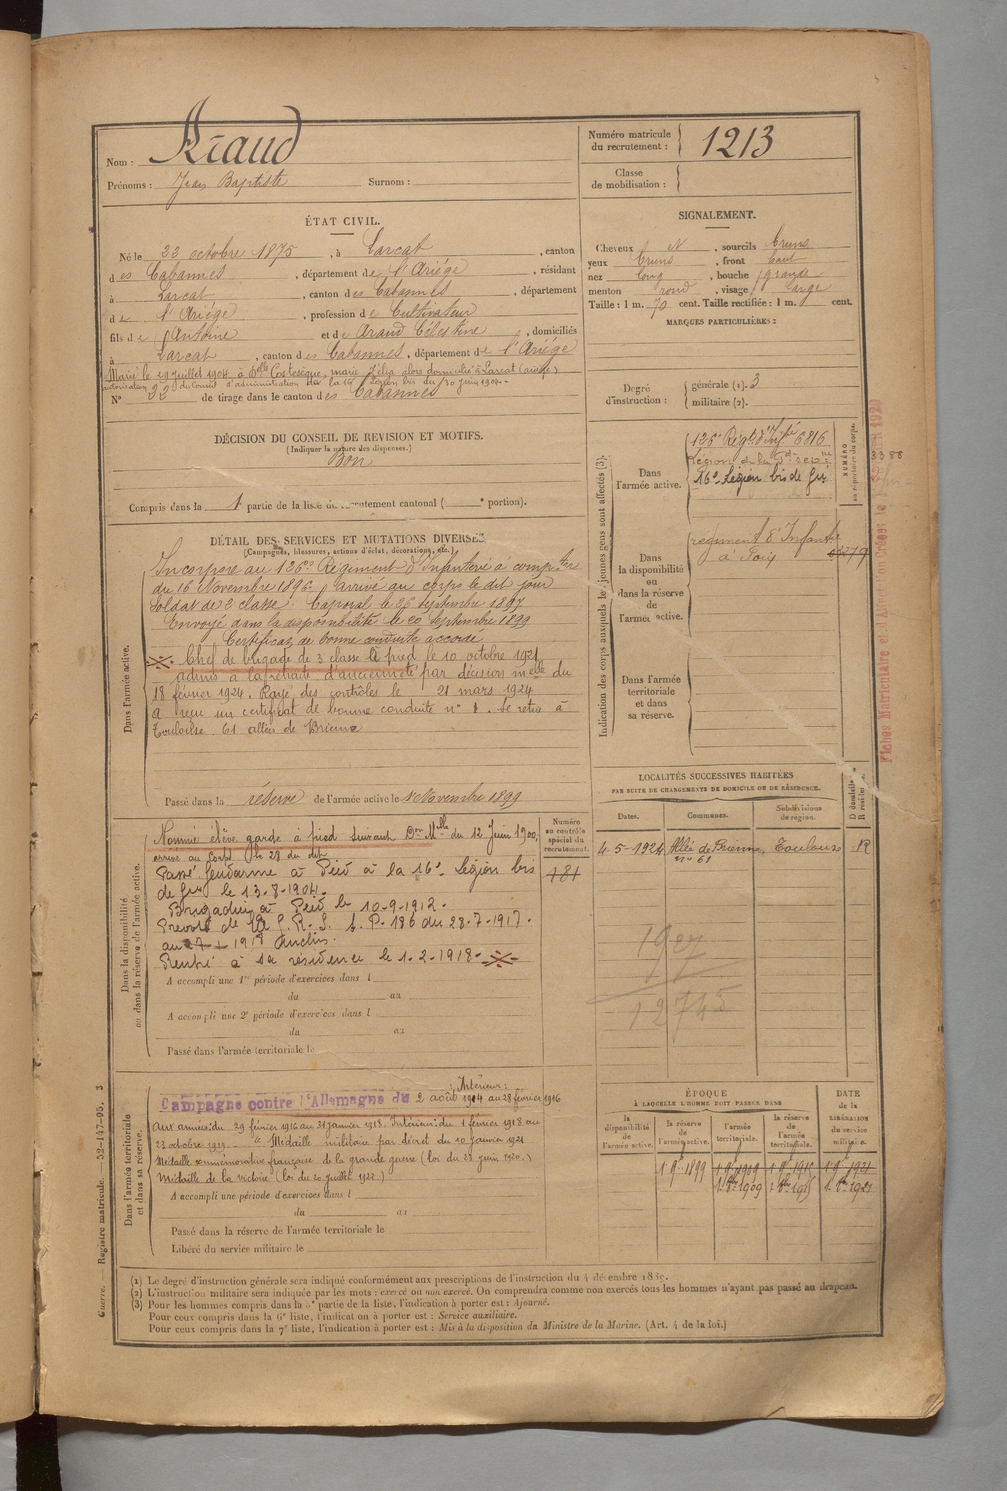 Nom : Araud
Prénoms : Jean Baptiste Surnom :
Numéro matricule du recrutement : 1213
Classe de mobilisation :
ÉTAT CIVIL.
Né le 22 octobre 1875, à Larcat, canton
des Cabannes, département de l'Ariège, résidant
à Larcat, canton des Cabannes, département
de l'Ariège, profession de Cultivateur
fils de Antoine et de Araud Célestine, domiciliés
à Larcat, canton des Cabannes, département de l'Ariège
Marié le 29 juillet 1904 à Delle Costesèque, marie Zélia alors domiciliée à Larcat (ariège)
autorisation du Conseil d'administration de la 16e Légion bis du 30 juin 1904.
N° 32 de tirage dans le canton des Cabannes
SIGNALEMENT.
Cheveux N, sourcils bruns
yeux bruns, front haut
nez long, bouche grande
menton rond, visage large
Taille : 1 m. 70 cent. Taille rectifiée : 1 m. cent.
MARQUES PARTICULIÈRES :
Degré d'instruction : générale (1). 3
militaire (2).
DÉCISION DU CONSEIL DE REVISION ET MOTIFS.
(Indiquer la nature des dispenses.)
Bon
Compris dans la 1 partie de la liste du recrutement cantonal ( e portion).
DÉTAIL DES SERVICES ET MUTATIONS DIVERSES
(Campagnes, blessures, actions d'éclat, décorations, etc.)
Dans l'armée active.
Incorporé au 126e Régiment d'Infanterie à compter
du 16 Novembre 1896. arrivé au corps le dit jour
Soldat de 2 classe. Caporal le 26 Septembre 1897
Envoyé dans la disponibilité le 20 Septembre 1899
Certificat de bonne conduite accordé
Chef de brigade de 3 classe à pied le 10 octobre 1921
admis à la retraite d'ancienneté par décision melle du
18 février 1924. Rayé des contrôles le 21 mars 1924
a reçu un certificat de bonne conduite n° 1. Se retire à
Toulouse. 61 allées de Brienne
Passé dans la réserve de l'armée active le 1 Novembre 1899
Indication des corps auxquels les jeunes gens sont affectés (3).
NUMÉRO au répertoire du corps.
Dans l'armée active.
126e Régt d'Infie 6816
16e Légion bis de Grie
3388
Dans la disponibilité ou dans la réserve de l'armée active.
régiment d'Infanterie
à Foix
Dans l'armée territoriale et dans sa réserve.
Fiches Matriculaire et d'Affectation Créées le
LOCALITÉS SUCCESSIVES HABITÉES
PAR SUITE DE CHANGEMENTS DE DOMICILE OU DE RÉSIDENCE.
Dates. Communes. Subdivisions de région. D domicile R résidence.
4-5-1924 Allée de Brienne, n° 61 Toulouse R
1907
12745
Dans la disponibilité ou dans la réserve de l'armée active.
Numéro au contrôle spécial du recrutement.
Nommé élève garde à pied suivant Don Melle du 12 Juin 1900,
arrivé au corps le 29 du dit
Passé Gendarme à Pied à la 16e Légion bis
de Grie le 13-8-1904.
181
Brigadier à Pied le 10-9-1912.
Prévôté de la G.R.G. S.P. 186 du 28-7-1917
au 1918 inclus.
Rentré à sa résidence le 1-2-1918
A accompli une 1re période d'exercices dans l
du au
A accompli une 2e période d'exercices dans l
du au
Passé dans l'armée territoriale le
Dans l'armée territoriale et dans sa réserve.
Campagne contre l'Allemagne du : Intérieur: 2 août 1914 au 28 février 1916
Aux armées: du 29 février 1916 au 31 janvier 1918. Intérieur: du 1 février 1918 au
23 octobre 1919 Médaille militaire par décret du 10 janvier 1921
Médaille commémorative française de la grande guerre (loi du 23 juin 1920.)
Médaille de la victoire (loi du 20 juillet 1922.)
A accompli une période d'exercices dans l
du au
Passé dans la réserve de l'armée territoriale le
Libéré du service militaire le
ÉPOQUE
À LAQUELLE L'HOMME DOIT PASSER DANS
la disponibilité de l'armée active. la réserve de l'armée active. l'armée territoriale. la réserve de l'armée territoriale. DATE de la LIBÉRATION du service militaire.
1 9bre 1899 1 9bre 1909 1 9bre 1915 1 9bre 1921
1 8bre 1909 1 8bre 1915 1 8bre 1921
(1) Le degré d'instruction générale sera indiqué conformément aux prescriptions de l'instruction du 4 décembre 1889.
(2) L'instruction militaire sera indiquée par les mots : exercé ou non exercé. On comprendra comme non exercés tous les hommes n'ayant pas passé au drapeau.
(3) Pour les hommes compris dans la 5e partie de la liste, l'indication à porter est : Ajourné.
Pour ceux compris dans la 6e liste, l'indication à porter est : Service auxiliaire.
Pour ceux compris dans la 7e liste, l'indication à porter est : Mis à la disposition du Ministre de la Marine. (Art. 4 de la loi.)
Guerre. — Registre matricule. — 52-147-95. 3